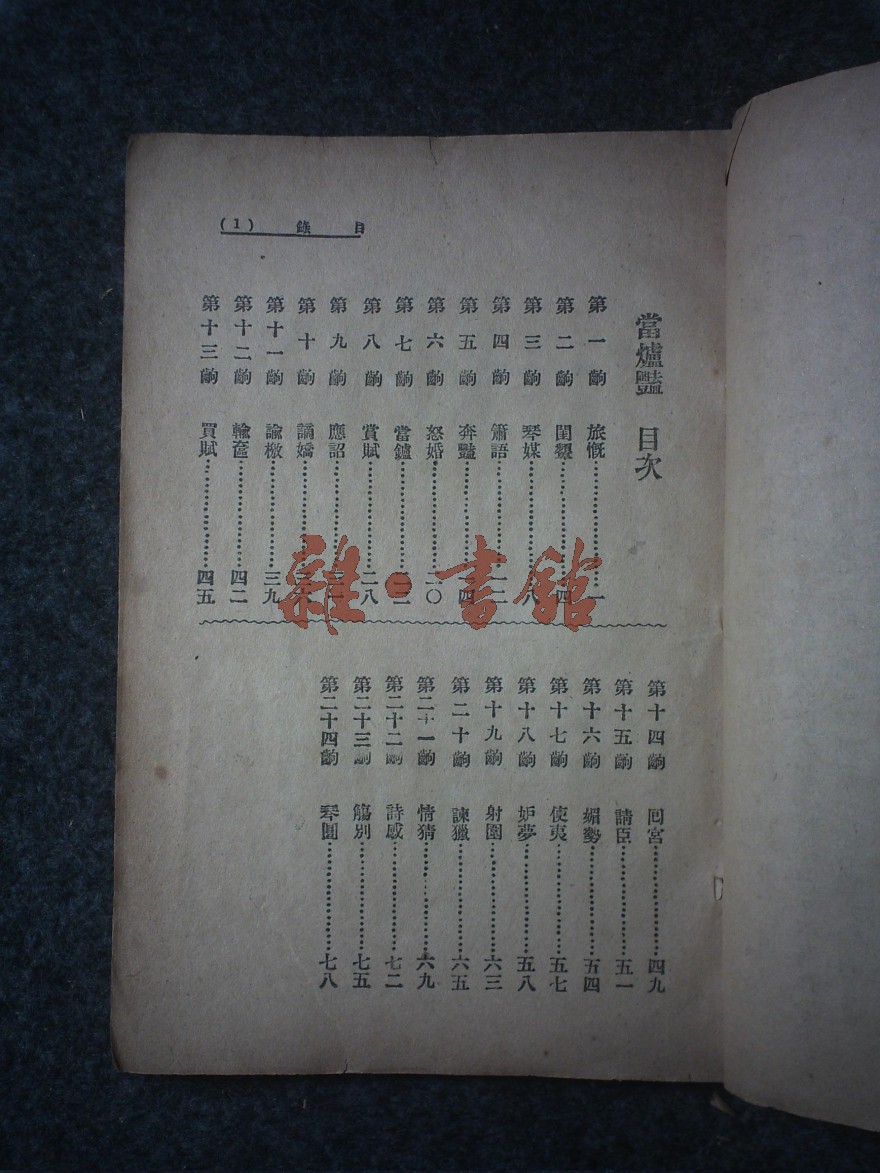 目錄 (1)
當爐豔 目次
第一齣 旅慨……一
第二齣 閨顰……四
第三齣 琴媒……八
第四齣 簫語……一二
第五齣 奔豔……四
第六齣 怒婚……二〇
第七齣 當鑪……二二
第八齣 賞賦……二八
第九齣 應詔……三一
第十齣 謫嬌……
第十一齣 諭檄……三九
第十二齣 輸奩……四二
第十三齣 買賦……四五
第十四齣 回宮……四九
第十五齣 請臣……五一
第十六齣 媚勢……五四
第十七齣 使夷……五七
第十八齣 妒夢……五八
第十九齣 射圍……六三
第二十齣 諫獵……六五
第二十一齣 情猜……六九
第二十二齣 詩感……七二
第二十三齣 觴別……七五
第二十四齣 琴圓……七八
雜·書館